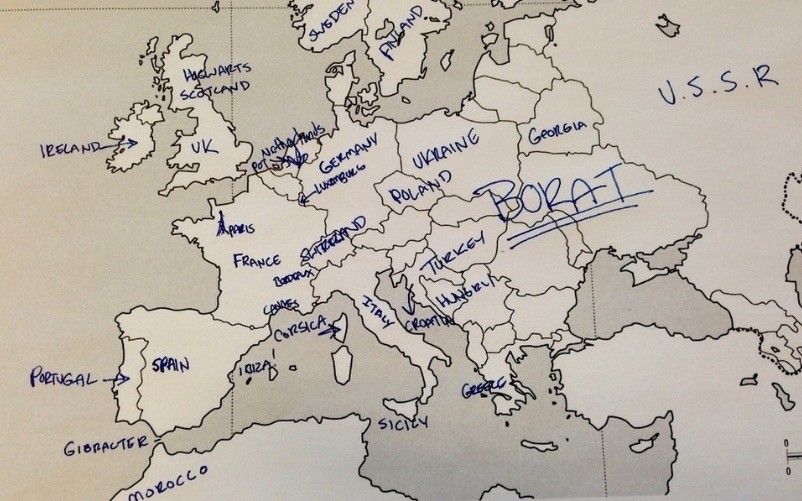 SWEDEN
FINLAND
HOGWARTS
SCOTLAND
U.S.S.R
IRELAND
UK
GERMANY
UKRAINE
GEORGIA
LUXEMBURG
POLAND
BORAT
PARIS
SWITZERLAND
FRANCE
TURKEY
BORDEAUX
CANNES
HUNGRY
CORSICA
ITALY
CROATIA
PORTUGAL
SPAIN
IBIZA
GREECE
SICILY
GIBRALTER
MOROCCO
0
0